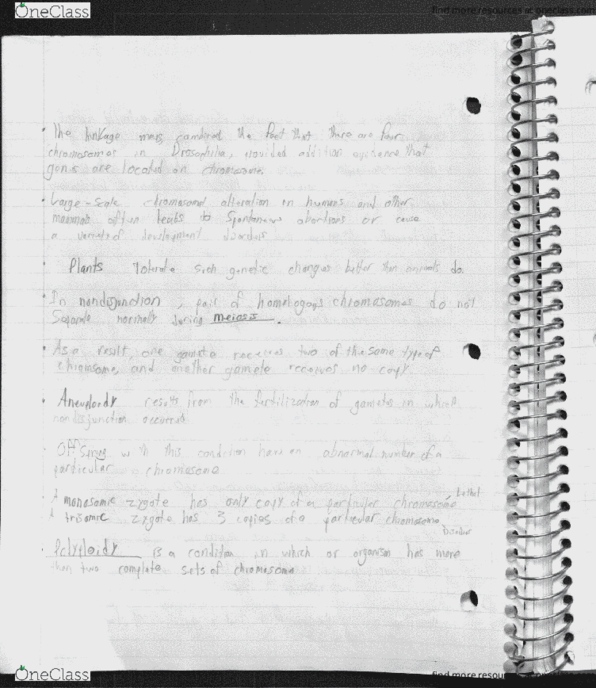 OneClass
find more resources at oneclass.com
• The linkage maps combined the fact that there are four
chromosomes in Drosophila, provided addition evidence that
genes are located on chromosome.
• Large-Scale chromosomal alteration in humans and other
mammals often leads to Spontaneous abortions or cause
a variety of development disorders
• Plants tolerate such genetic changes better than animals do.
• In nondisjunction, pair of homologous chromosomes do not
Separate normally during meiosis.
• As a result, one gamete receives two of the same type of
chromosome, and another gamete receives no copy.
• Aneuploidy results from the fertilization of gametes in which
nondisjunction occurred
• Offspring with this condition have an abnormal number of a
particular chromosome
A monosomic zygote has only copy of a particular chromosome
A trisomic zygote has 3 copies of a particular chromosome
• Polyploidy is a condition in which or organism has more
than two complete sets of chromosome
OneClass